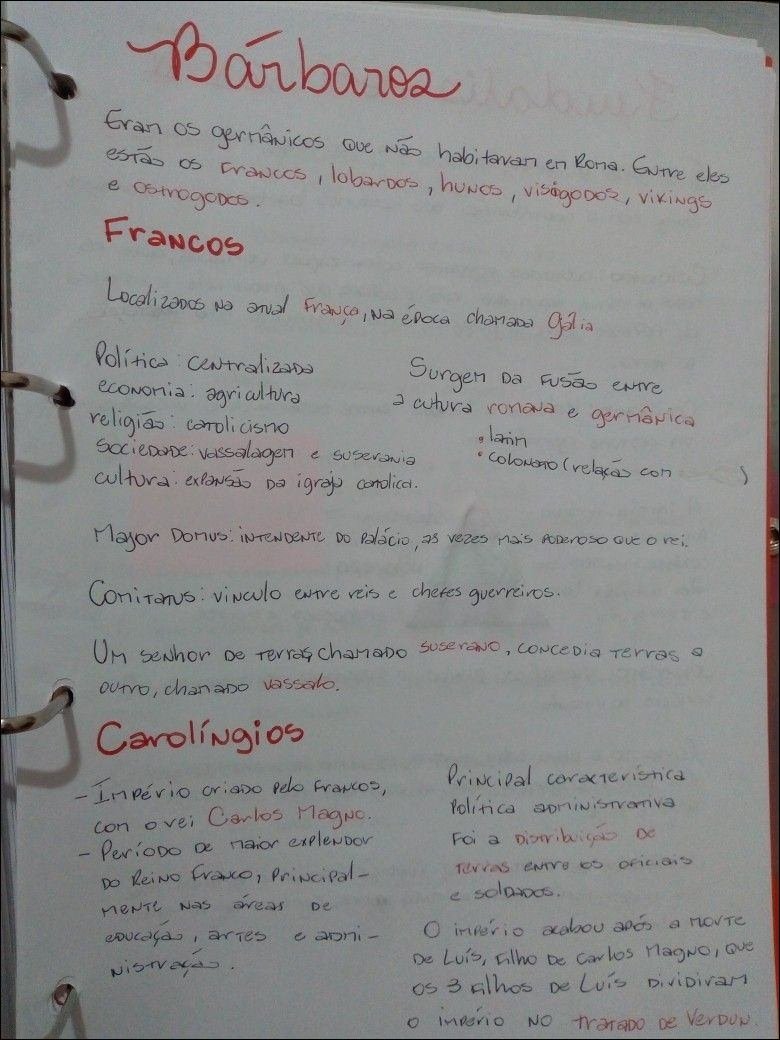 Bárbaros
Eram os germânicos que não habitavam em Roma. Entre eles
estão os Francos, lobardos, hunos, visigodos, vikings
e ostrogodos.
Francos
Localizados na atual França, na época chamada Gália
Política: centralizada
economia: agricultura
religião: catolicismo
Sociedade: vassalagem e suserania
cultura: expansão da igreja católica.
Surgem da fusão entre
a cutura romana e germânica
• latim
• colonato (relação com )
Major Domus: intendente do palácio, as vezes mais poderoso que o rei.
Comitatus: vinculo entre reis e chefes guerreiros.
Um senhor de terras, chamado suserano, concedia terras a
outro, chamado vassalo.
Carolíngios
- Império criado pelo Francos,
com o rei Carlos Magno.
- Período de maior explendor
do Reino Franco, principal-
mente nas áreas de
educação, artes e admi-
nistração.
Principal característica
Política administrativa
Foi a distribuição de
terras entre os oficiais
e soldados.
O império acabou após a morte
de Luís, filho de Carlos Magno, que
os 3 filhos de Luís dividiram
o império no tratado de Verdun.